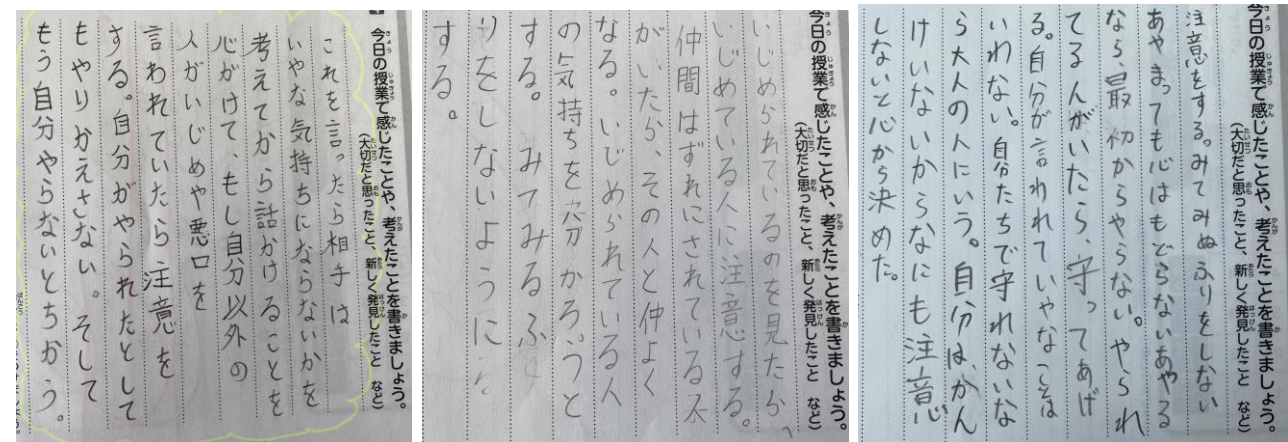 今日の授業で感じたことや、考えたことを書きましょう。
(大切だと思ったこと、新しく発見したこと など)
これを言ったら相手は
いやな気持ちにならないかを
考えてから話かけることを
心がけて、もし自分以外の
人がいじめや悪口を
言われていたら注意を
する。自分がやられたとして
もやりかえさない。そして
もう自分やらないとちかう。
今日の授業で感じたことや、考えたことを書きましょう。
(大切だと思ったこと、新しく発見したこと など)
いじめられているのを見たら、
いじめている人に注意する。
仲間はずれにされている
がいたら、その人と仲よく
なる。いじめられている人
の気持ちを分かろうと
する。みてみるふ
りをしないように
する。
今日の授業で感じたことや、考えたことを書きましょう。
(大切だと思ったこと、新しく発見したこと など)
注意をする。みてみぬふりをしない
あやまっても心はもどらないあやる
なら、最初からやらない。やられ
てる人がいたら、守ってあげ
る。自分が言われていやなことは
いわない。自分たちで守れないな
ら大人の人にいう。自分は、かん
けいないからなにも注意
しないと心から決めた。